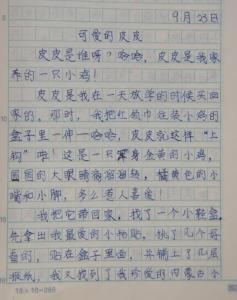 9月23日
可爱的皮皮
皮皮是谁呀？哈哈，皮皮是我家
养的一只小鸡！
皮皮是我在一天放学的时候买回
家的。那时，我把红领巾往装小鸡的
盒子里一伸一哈哈，皮皮就这样“上
钩”啦！这是一只浑身金黄的小鸡，
圆圆的大眼睛滴溜溜转，橘黄色的小
嘴和小脚，多么惹人喜爱！
我把它带回家，找了一个小鞋盒，
先拿出我最爱的小粘贴，挑了几个好
看的，贴在盒子里面，并铺上了几层
报纸，我又找到了我珍爱的内蒙古小
18×16=288